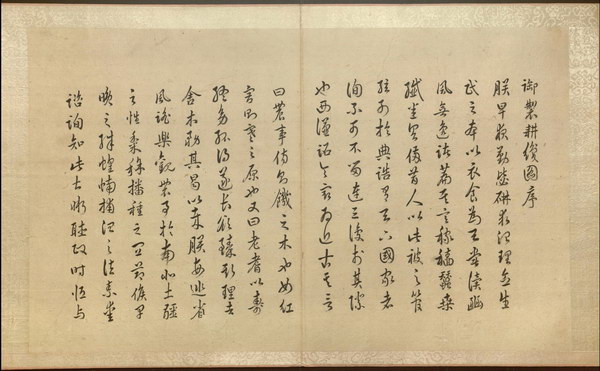 御製耕織圖序
朕早夜勤毖研求治理念生
民之本以衣食為天嘗讀豳
風無逸諸篇其言稼穡蠶桑
纖悉具備昔人以此被之管
絃列於典誥有天下國家者
洵不可不留連三復於其際
也西漢詔令最為近古其言
曰農事傷則饑之本也女紅
害則寒之原也又曰老者以壽
終幼孤得遂長欲臻斯理者
舍本務其曷以哉朕每巡省
風謠樂觀農事於南北土疆
之性黍稌播種之宜節候早
晚之殊蝗蝻捕治之法素愛
諮詢知此甚晰聽政時恆與